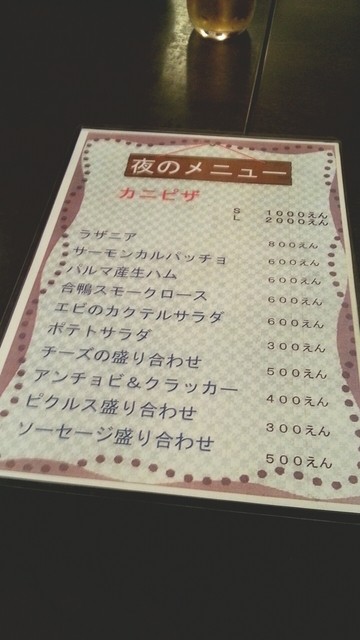 夜のメニュー
カニピザ
S 1000えん
L 2000えん
ラザニア 800えん
サーモンカルパッチョ 600えん
パルマ産生ハム 600えん
合鴨スモークロース 600えん
エビのカクテルサラダ 600えん
ポテトサラダ 300えん
チーズの盛り合わせ 500えん
アンチョビ&クラッカー 400えん
ピクルス盛り合わせ 300えん
ソーセージ盛り合わせ 500えん